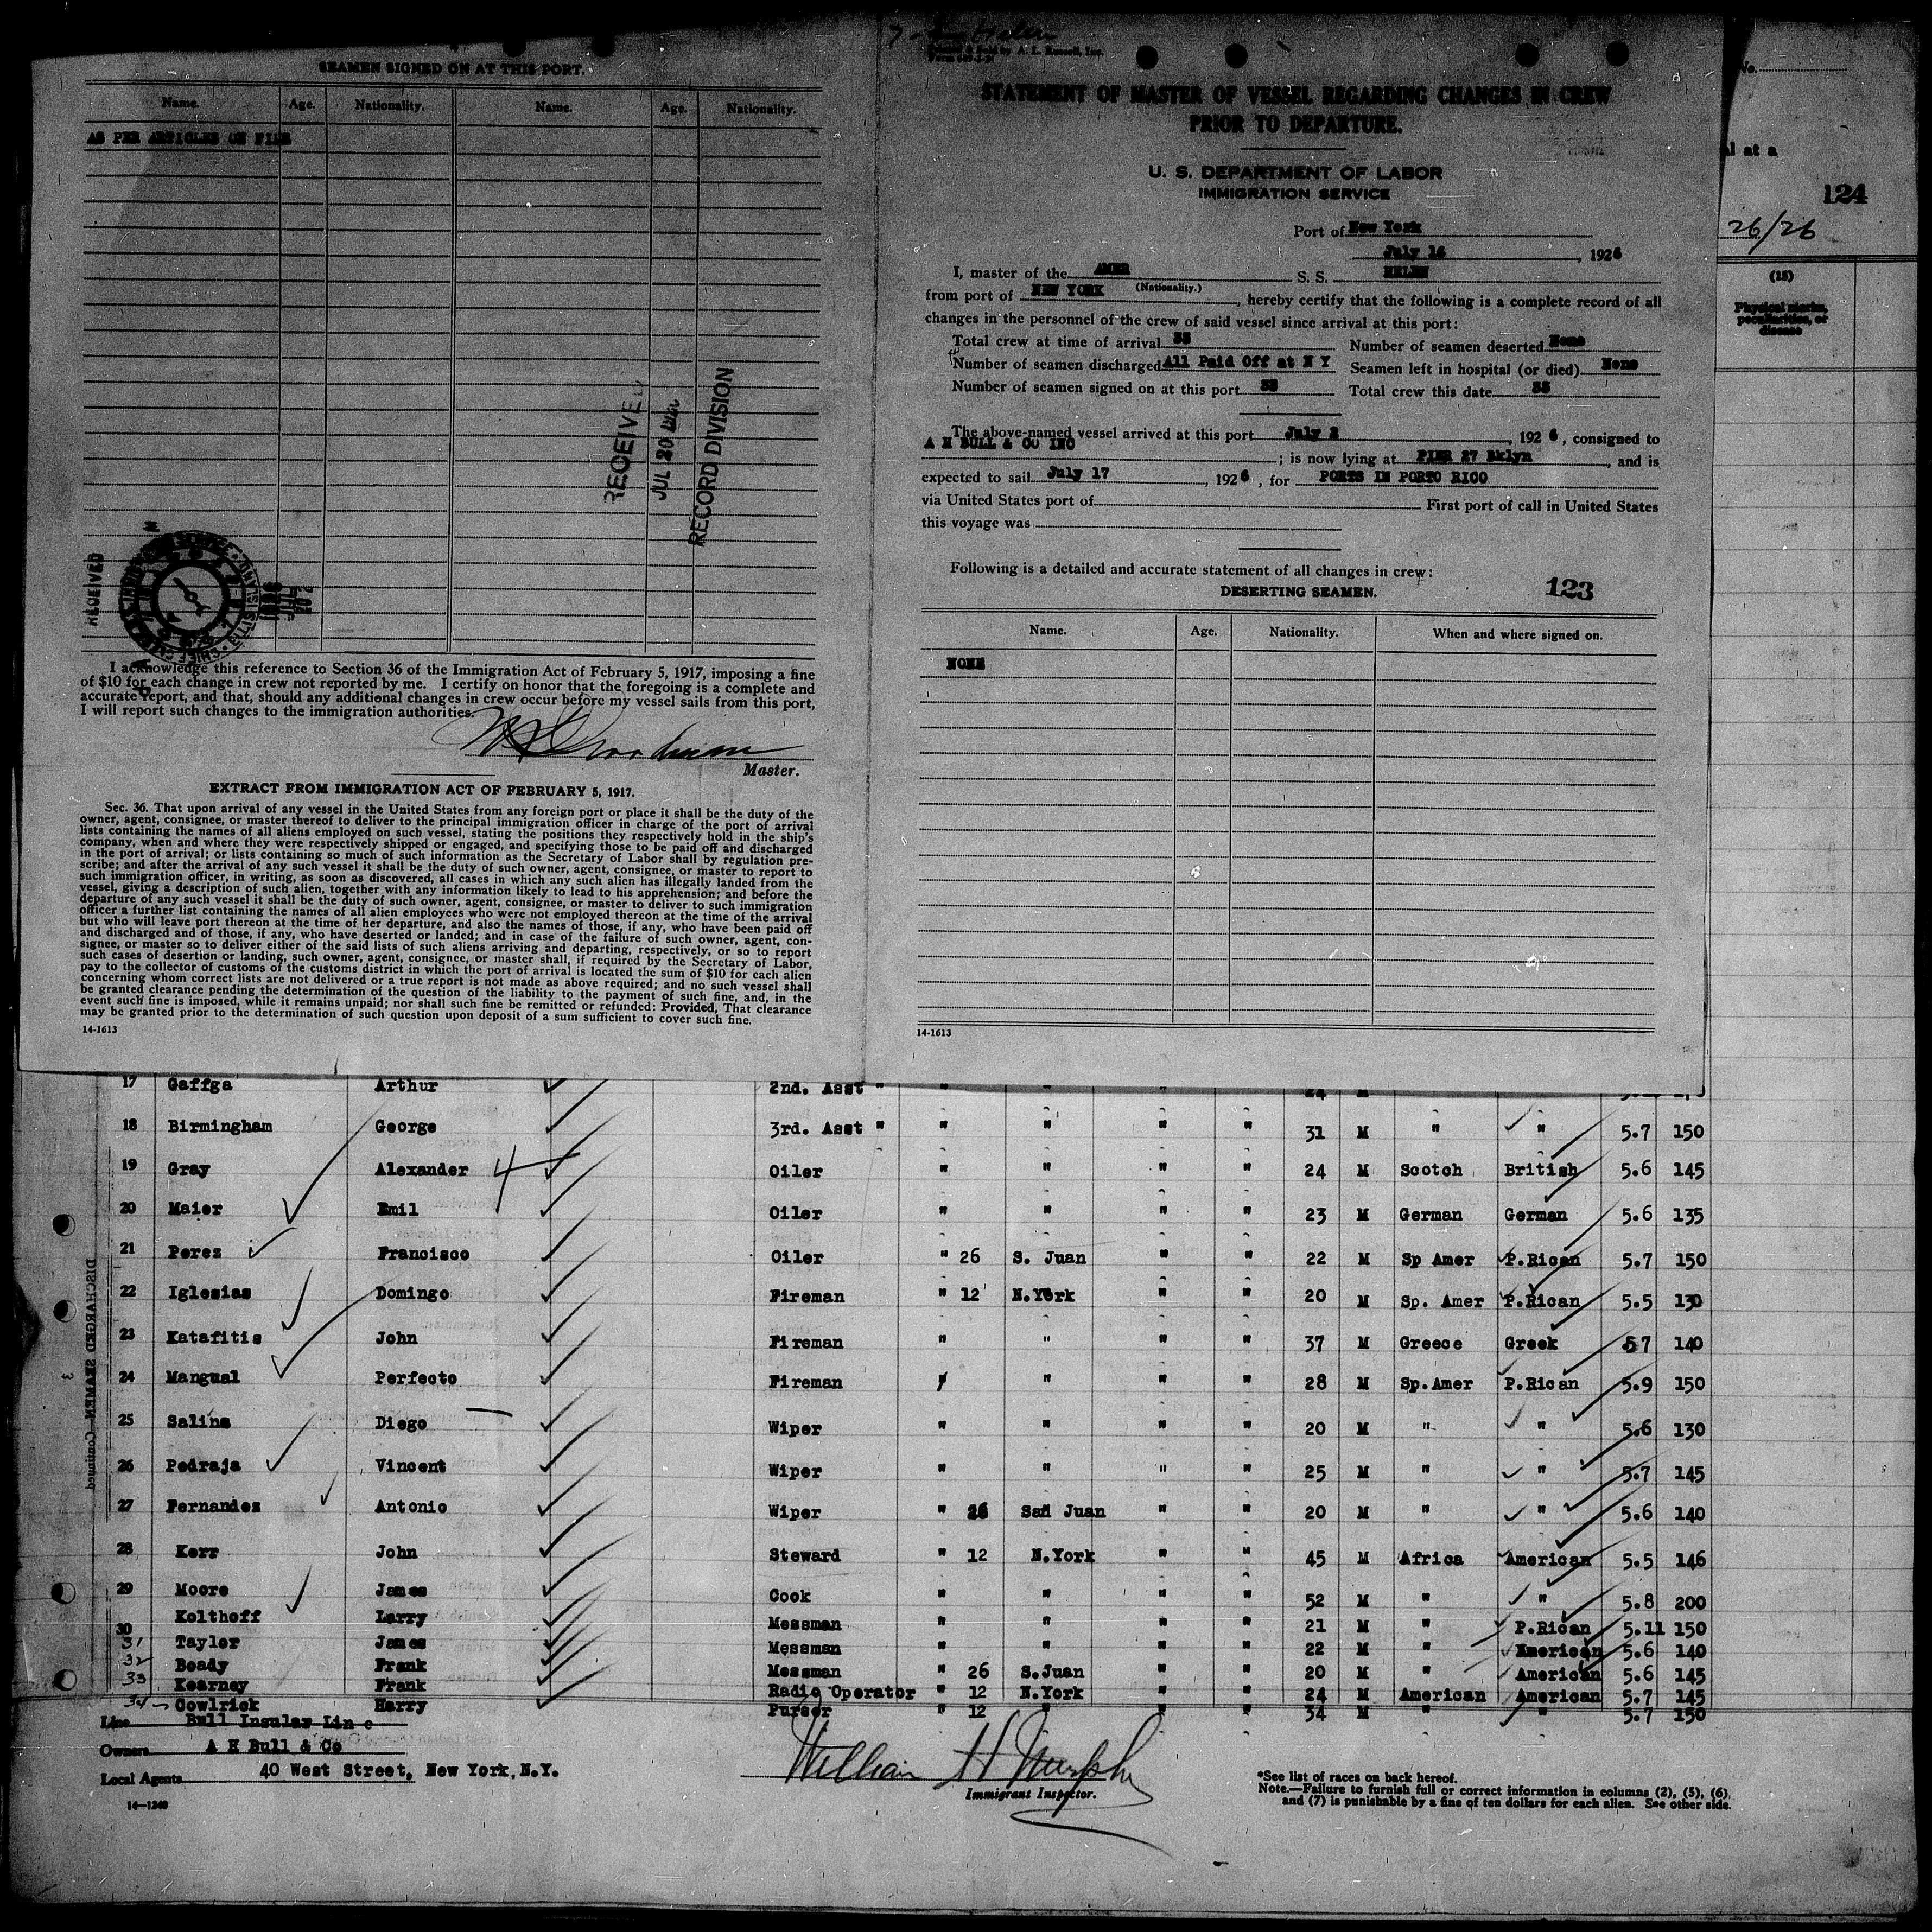 SEAMEN SIGNED ON AT THIS PORT.
Name. Age. Nationality. Name. Age. Nationality.
AS PER ARTICLES ON FILE
RECEIVED
JUL 20
RECORD DIVISION
RECEIVED
I acknowledge this reference to Section 36 of the Immigration Act of February 5, 1917, imposing a fine
of $10 for each change in crew not reported by me. I certify on honor that the foregoing is a complete and
accurate report, and that, should any additional changes in crew occur before my vessel sails from this port,
I will report such changes to the immigration authorities.
Master.
EXTRACT FROM IMMIGRATION ACT OF FEBRUARY 5, 1917.
Sec. 36. That upon arrival of any vessel in the United States from any foreign port or place it shall be the duty of the
owner, agent, consignee, or master thereof to deliver to the principal immigration officer in charge of the port of arrival
lists containing the names of all aliens employed on such vessel, stating the positions they respectively hold in the ship's
company, when and where they were respectively shipped or engaged, and specifying those to be paid off and discharged
in the port of arrival; or lists containing so much of such information as the Secretary of Labor shall by regulation pre-
scribe; and after the arrival of any such vessel it shall be the duty of such owner, agent, consignee, or master to report to
such immigration officer, in writing, as soon as discovered, all cases in which any such alien has illegally landed from the
vessel, giving a description of such alien, together with any information likely to lead to his apprehension; and before the
departure of any such vessel it shall be the duty of such owner, agent, consignee, or master to deliver to such immigration
officer a further list containing the names of all alien employees who were not employed thereon at the time of the arrival
but who will leave port thereon at the time of her departure, and also the names of those, if any, who have been paid off
and discharged and of those, if any, who have deserted or landed; and in case of the failure of such owner, agent, con-
signee, or master so to deliver either of the said lists of such aliens arriving and departing, respectively, or so to report
such cases of desertion or landing, such owner, agent, consignee, or master shall, if required by the Secretary of Labor,
pay to the collector of customs of the customs district in which the port of arrival is located the sum of $10 for each alien
concerning whom correct lists are not delivered or a true report is not made as above required; and no such vessel shall
be granted clearance pending the determination of the question of the liability to the payment of such fine, and, in the
event such fine is imposed, while it remains unpaid; nor shall such fine be remitted or refunded: Provided, That clearance
may be granted prior to the determination of such question upon deposit of a sum sufficient to cover such fine.
14-1613
STATEMENT OF MASTER OF VESSEL REGARDING CHANGES IN CREW
PRIOR TO DEPARTURE.
U. S. DEPARTMENT OF LABOR
IMMIGRATION SERVICE
Port of New York
July 16, 1926
I, master of the AMER S. S. HELEN
(Nationality.)
from port of NEW YORK, hereby certify that the following is a complete record of all
changes in the personnel of the crew of said vessel since arrival at this port:
Total crew at time of arrival Number of seamen deserted None
Number of seamen discharged All Paid Off at N Y Seamen left in hospital (or died) None
Number of seamen signed on at this port Total crew this date
The above-named vessel arrived at this port July 2, 1926, consigned to
A H BULL & CO INC; is now lying at PIER 27 Bklyn, and is
expected to sail July 17, 1926, for PORTS IN PORTO RICO
via United States port of First port of call in United States
this voyage was
Following is a detailed and accurate statement of all changes in crew:
123
DESERTING SEAMEN.
Name. Age. Nationality. When and where signed on.
NONE
14-1613
No.
al at a
124
26/26
(15)
Physical marks, peculiarities, or disease
DISCHARGED SEAMEN—Continued
3
17 Gaffga Arthur 2nd. Asst " " " " " 24 M
18 Birmingham George 3rd. Asst " " " " " 31 M " " 5.7 150
19 Gray Alexander 4 Oiler " " " " 24 M Scotch British 5.6 145
20 Maier Emil Oiler " " " " 23 M German German 5.6 135
21 Perez Francisco Oiler " 26 S. Juan " " 22 M Sp Amer P.Rican 5.7 150
22 Iglesias Domingo Fireman " 12 N.York " " 20 M Sp. Amer P.Rican 5.5 130
23 Katafitis John Fireman " " " " 37 M Greece Greek 57 140
24 Mangual Perfecto Fireman " " " " 28 M Sp.Amer P.Rican 5.9 150
25 Salina Diego Wiper " " " " 20 M " " 5.6 130
26 Pedraja Vincent Wiper " " " " 25 M " " 5.7 145
27 Fernandez Antonio Wiper " 26 San Juan " " 20 M " " 5.6 140
28 Kerr John Steward " 12 N.York " " 45 M Africa American 5.5 146
29 Moore James Cook " " " " 52 M " " 5.8 200
30 Kolthoff Larry Messman " " " " 21 M " P.Rican 5.11 150
31 Tayler James Messman " " " " 22 M " American 5.6 140
32 Beady Frank Messman " 26 S.Juan " " 20 M " American 5.6 145
33 Kearney Frank Radio Operator " 12 N.York " " 24 M American American 5.7 145
34 Cowlrick Harry Purser " 12 " " " 34 M " " 5.7 150
Line Bull Insular Line
Owners A H Bull & Co
Local Agents 40 West Street, New York, N.Y.
14-1240
William H Murphy
Immigrant Inspector.
*See list of races on back hereof.
Note.—Failure to furnish full or correct information in columns (2), (5), (6),
and (7) is punishable by a fine of ten dollars for each alien. See other side.